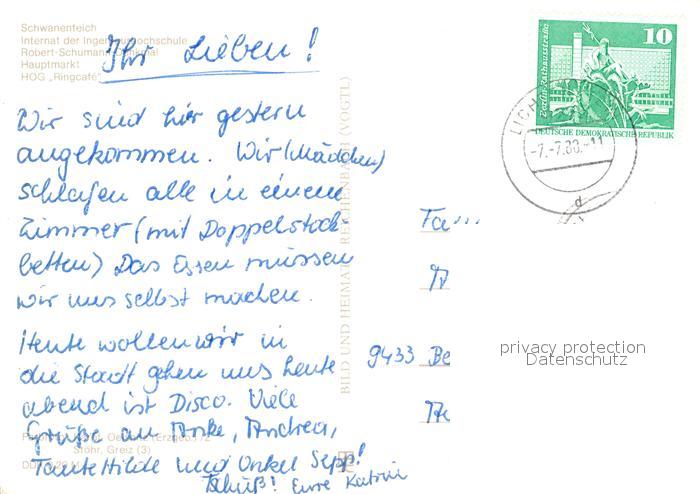 Schwanenteich
Internat der Ingenieurhochschule
Robert-Schumann-Denkmal
Hauptmarkt
HOG „Ringcafé"
Ihr Lieben!
Wir sind hier gestern
angekommen. Wir (Mädchen)
schlafen alle in einem
Zimmer (mit Doppelstock-
betten) Das Essen müssen
wir uns selbst machen.
Heute wollen wir in
die Stadt gehen uns heute
abend ist Disco. Viele
Grüße an Anke, Andrea,
Tante Hilde und Onkel Sepp!
Tschüß! Eure Katrin
Stöhr, Greiz (3)
BILD UND HEIMAT REICHENBACH (VOGTL)
10
Berlin, Rathausstraße
DEUTSCHE DEMOKRATISCHE REPUBLIK
LICH
-7.-7.83.-11
d
Fa...
9433 Be
privacy protection
Datenschutz